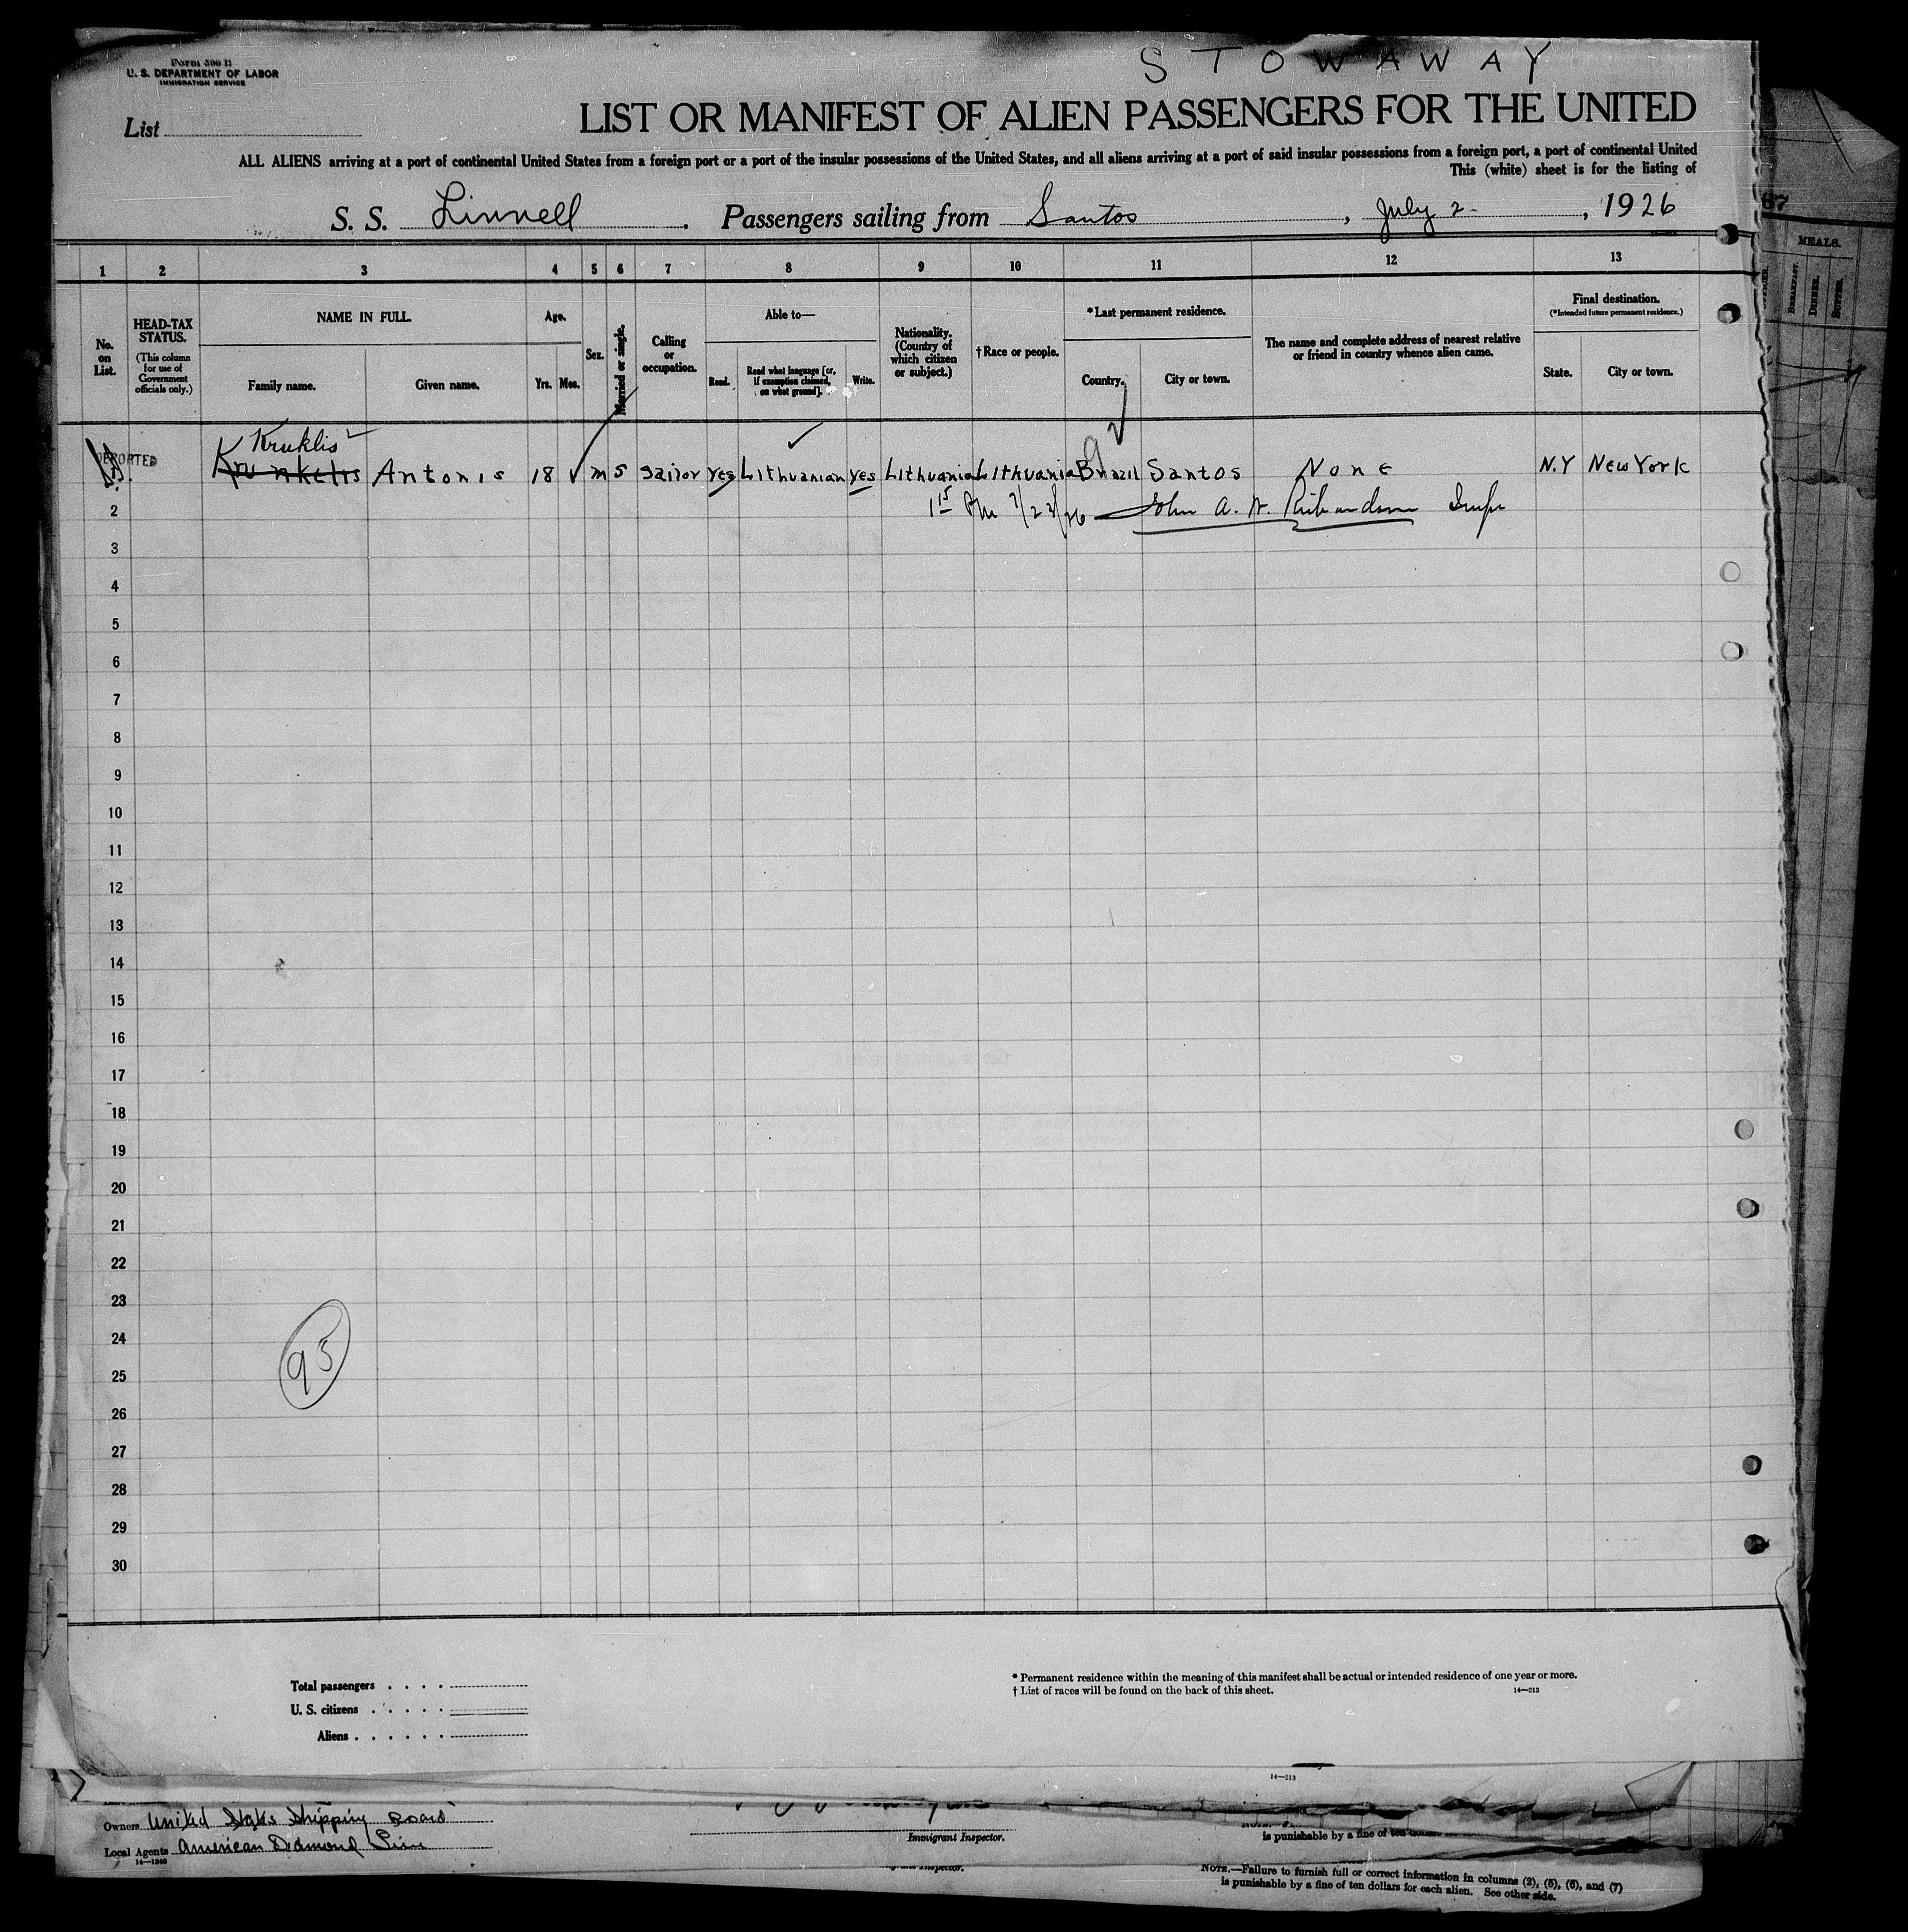 STOWAWAY
Form 500 B
U. S. DEPARTMENT OF LABOR
IMMIGRATION SERVICE
List
LIST OR MANIFEST OF ALIEN PASSENGERS FOR THE UNITED
ALL ALIENS arriving at a port of continental United States from a foreign port or a port of the insular possessions of the United States, and all aliens arriving at a port of said insular possessions from a foreign port, a port of continental United
This (white) sheet is for the listing of
S. S. Linnell. Passengers sailing from Santos, July 2, 1926
67
1 2 3 4 5 6 7 8 9 10 11 12 13
MEALS.
BREAKFAST.
DINNER.
SUPPER.
No. on List.
HEAD-TAX STATUS.
(This column for use of Government officials only.)
NAME IN FULL.
Family name.
Given name.
Age.
Yrs.
Mos.
Sex.
Married or single.
Calling or occupation.
Able to—
Read.
Read what language [or, if exemption claimed, on what ground].
Write.
Nationality. (Country of which citizen or subject.)
†Race or people.
*Last permanent residence.
Country.
City or town.
The name and complete address of nearest relative or friend in country whence alien came.
Final destination.
(*Intended future permanent residence.)
State.
City or town.
Kruklis
DEPORTED Krunkelis Antonis 18 m s sailor yes Lithuanian yes Lithuania Lithuania Brazil Santos None N.Y New York
2 1st Pm 7/23/26 John A. W. Richardson Insp
3
4
5
6
7
8
9
10
11
12
13
14
15
16
17
18
19
20
21
22
23
24
25
26
27
28
29
30
95
Total passengers
U. S. citizens
Aliens
* Permanent residence within the meaning of this manifest shall be actual or intended residence of one year or more.
† List of races will be found on the back of this sheet. 14—213
14—213
Owners United States Shipping Board
Local Agents American Diamond Line
14—1240
Immigrant Inspector.
is punishable by a fine of ten
Inspector.
NOTE.—Failure to furnish full or correct information in columns (2), (5), (6), and (7)
is punishable by a fine of ten dollars for each alien. See other side.